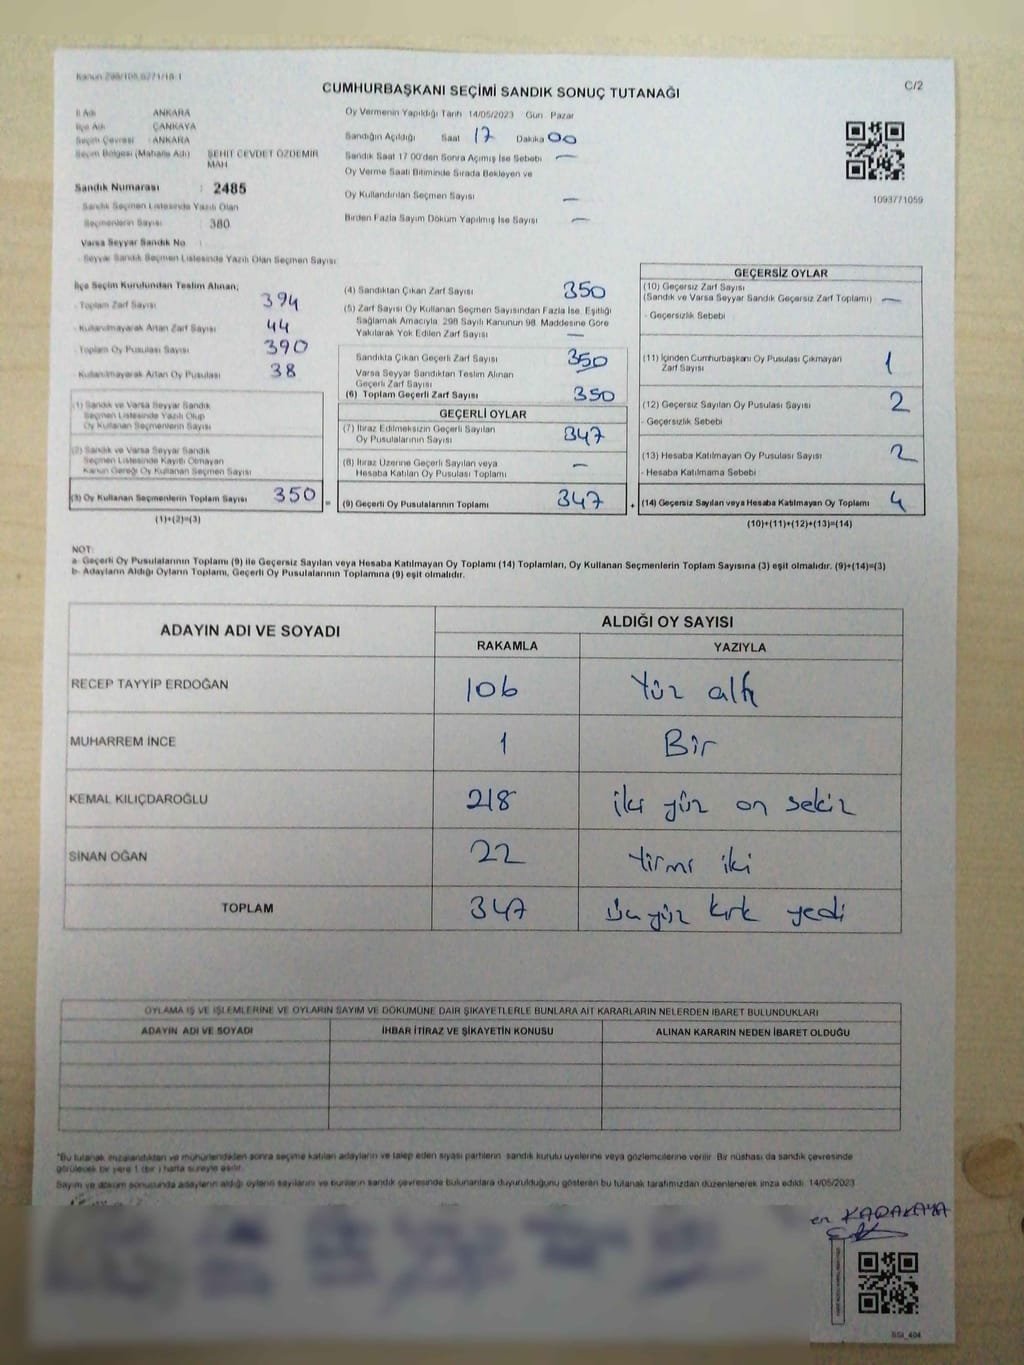 Kanun 298/105 6271/18 1
C/2
CUMHURBAŞKANI SEÇİMİ SANDIK SONUÇ TUTANAĞI
İl Adı ANKARA
İlçe Adı ÇANKAYA
Seçim Çevresi : ANKARA
Seçim Bölgesi (Mahalle Adı) ŞEHİT CEVDET ÖZDEMİR MAH
Sandık Numarası : 2485
Sandık Seçmen Listesinde Yazılı Olan
Seçmenlerin Sayısı 380
Varsa Seyyar Sandık No :
- Seyyar Sandık Seçmen Listesinde Yazılı Olan Seçmen Sayısı
Oy Vermenin Yapıldığı Tarih 14/05/2023 Gün Pazar
Sandığın Açıldığı Saat 17 Dakika 00
Sandık Saat 17 00'den Sonra Açımış İse Sebebi —
Oy Verme Saati Bitiminde Sırada Bekleyen ve
Oy Kullandırılan Seçmen Sayısı —
Birden Fazla Sayım Döküm Yapılmış İse Sayısı —
1093771059
İlçe Seçim Kurulundan Teslim Alınan;
- Toplam Zarf Sayısı 394
- Kullanılmayarak Artan Zarf Sayısı 44
- Toplam Oy Pusulası Sayısı 390
- Kullanılmayarak Artan Oy Pusulası 38
(1) Sandık ve Varsa Seyyar Sandık
Seçmen Listesinde Yazılı Olup
Oy Kullanan Seçmenlerin Sayısı
(2) Sandık ve Varsa Seyyar Sandık
Seçmen Listesinde Kayıtlı Olmayan
Kanun Gereği Oy Kullanan Seçmen Sayısı
(3) Oy Kullanan Seçmenlerin Toplam Sayısı 350 =
(1)+(2)=(3)
(4) Sandıktan Çıkan Zarf Sayısı 350
(5) Zarf Sayısı Oy Kullanan Seçmen Sayısından Fazla İse, Eşitliği
Sağlamak Amacıyla 298 Sayılı Kanunun 98. Maddesine Göre
Yakılarak Yok Edilen Zarf Sayısı —
Sandıkta Çıkan Geçerli Zarf Sayısı 350
Varsa Seyyar Sandıktan Teslim Alınan
Geçerli Zarf Sayısı
(6) Toplam Geçerli Zarf Sayısı 350
GEÇERLİ OYLAR
(7) İtiraz Edilmeksizin Geçerli Sayılan
Oy Pusulalarının Sayısı 347
(8) İtiraz Üzerine Geçerli Sayılan veya
Hesaba Katılan Oy Pusulası Toplamı —
(9) Geçerli Oy Pusulalarının Toplamı 347 +
GEÇERSİZ OYLAR
(10) Geçersiz Zarf Sayısı
(Sandık ve Varsa Seyyar Sandık Geçersiz Zarf Toplamı) —
- Geçersizlik Sebebi
(11) İçinden Cumhurbaşkanı Oy Pusulası Çıkmayan
Zarf Sayısı 1
(12) Geçersiz Sayılan Oy Pusulası Sayısı 2
- Geçersizlik Sebebi
(13) Hesaba Katılmayan Oy Pusulası Sayısı 2
- Hesaba Katılmama Sebebi
(14) Geçersiz Sayılan veya Hesaba Katılmayan Oy Toplamı 4
(10)+(11)+(12)+(13)=(14)
NOT:
a- Geçerli Oy Pusulalarının Toplamı (9) ile Geçersiz Sayılan veya Hesaba Katılmayan Oy Toplamı (14) Toplamları, Oy Kullanan Seçmenlerin Toplam Sayısına (3) eşit olmalıdır. (9)+(14)=(3)
b- Adayların Aldığı Oyların Toplamı, Geçerli Oy Pusulalarının Toplamına (9) eşit olmalıdır.
ADAYIN ADI VE SOYADI ALDIĞI OY SAYISI
RAKAMLA YAZIYLA
RECEP TAYYİP ERDOĞAN 106 Yüz altı
MUHARREM İNCE 1 Bir
KEMAL KILIÇDAROĞLU 218 iki yüz on sekiz
SİNAN OĞAN 22 Yirmi iki
TOPLAM 347 üç yüz kırk yedi
OYLAMA İŞ VE İŞLEMLERİNE VE OYLARIN SAYIM VE DÖKÜMÜNE DAİR ŞİKAYETLERLE BUNLARA AİT KARARLARIN NELERDEN İBARET BULUNDUKLARI
ADAYIN ADI VE SOYADI İHBAR İTİRAZ VE ŞİKAYETİN KONUSU ALINAN KARARIN NEDEN İBARET OLDUĞU
*Bu tutanak imzalandıktan ve mühürlendikten sonra seçime katılan adayların ve talep eden siyasi partilerin sandık kurulu üyelerine veya gözlemcilerine verilir. Bir nüshası da sandık çevresinde
görülecek bir yere 1 (bir) hafta süreyle asılır.
Sayım ve döküm sonucunda adayların aldığı oyların sayılarını ve bunların sandık çevresinde bulunanlara duyurulduğunu gösteren bu tutanak tarafımızdan düzenlenerek imza edildi. 14/05/2023
en KARAKAYA
SSI_404